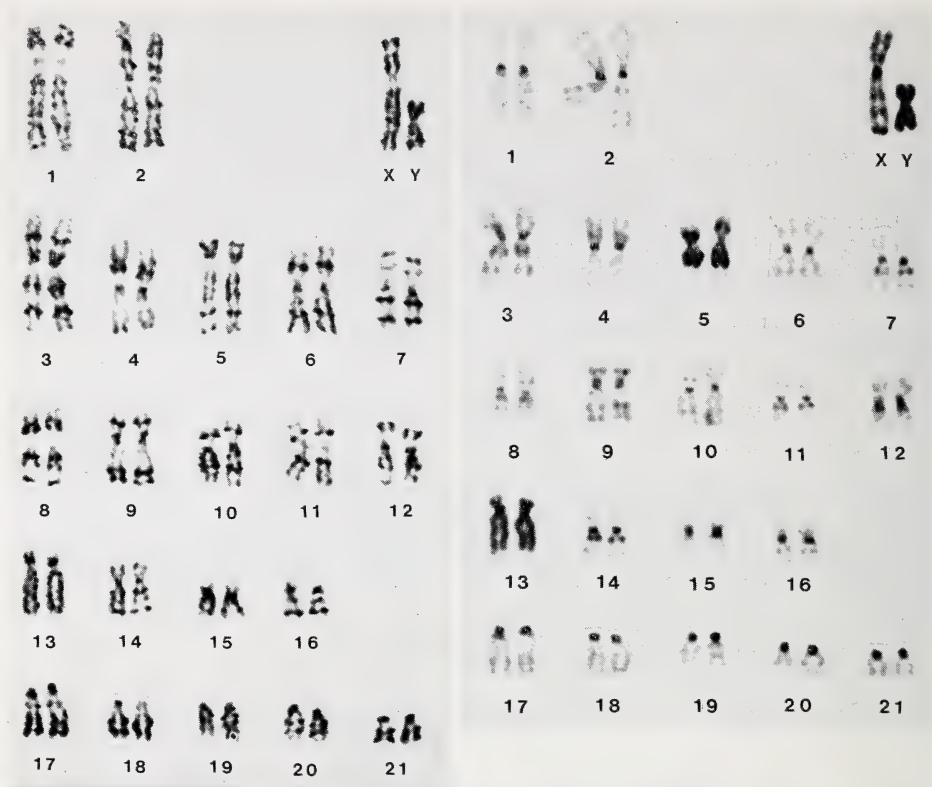 1 2 X Y
3 4 5 6 7
8 9 10 11 12
13 14 15 16
17 18 19 20 21
1 2 X Y
3 4 5 6 7
8 9 10 11 12
13 14 15 16
17 18 19 20 21